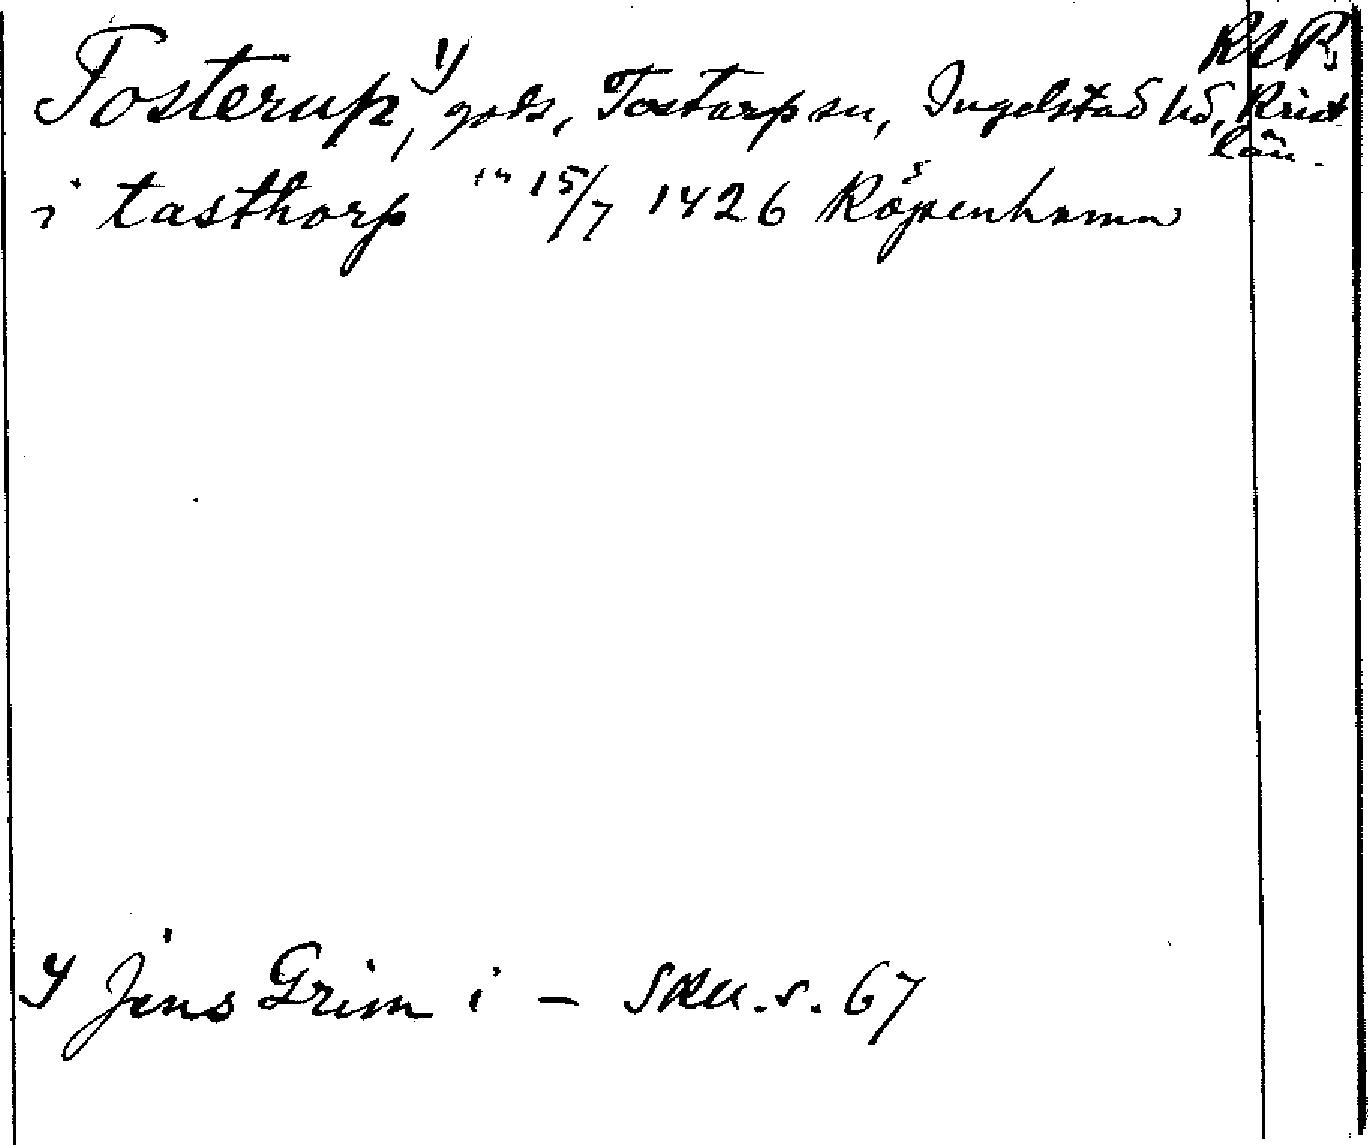 RAP
Tosterup, 1) gods, Tostarp sn, Ingelstad hd, Krist
län.
i tasthorp "" 15/7 1426 Köpenhamn
1) Jens Grim i – SRU. s. 67